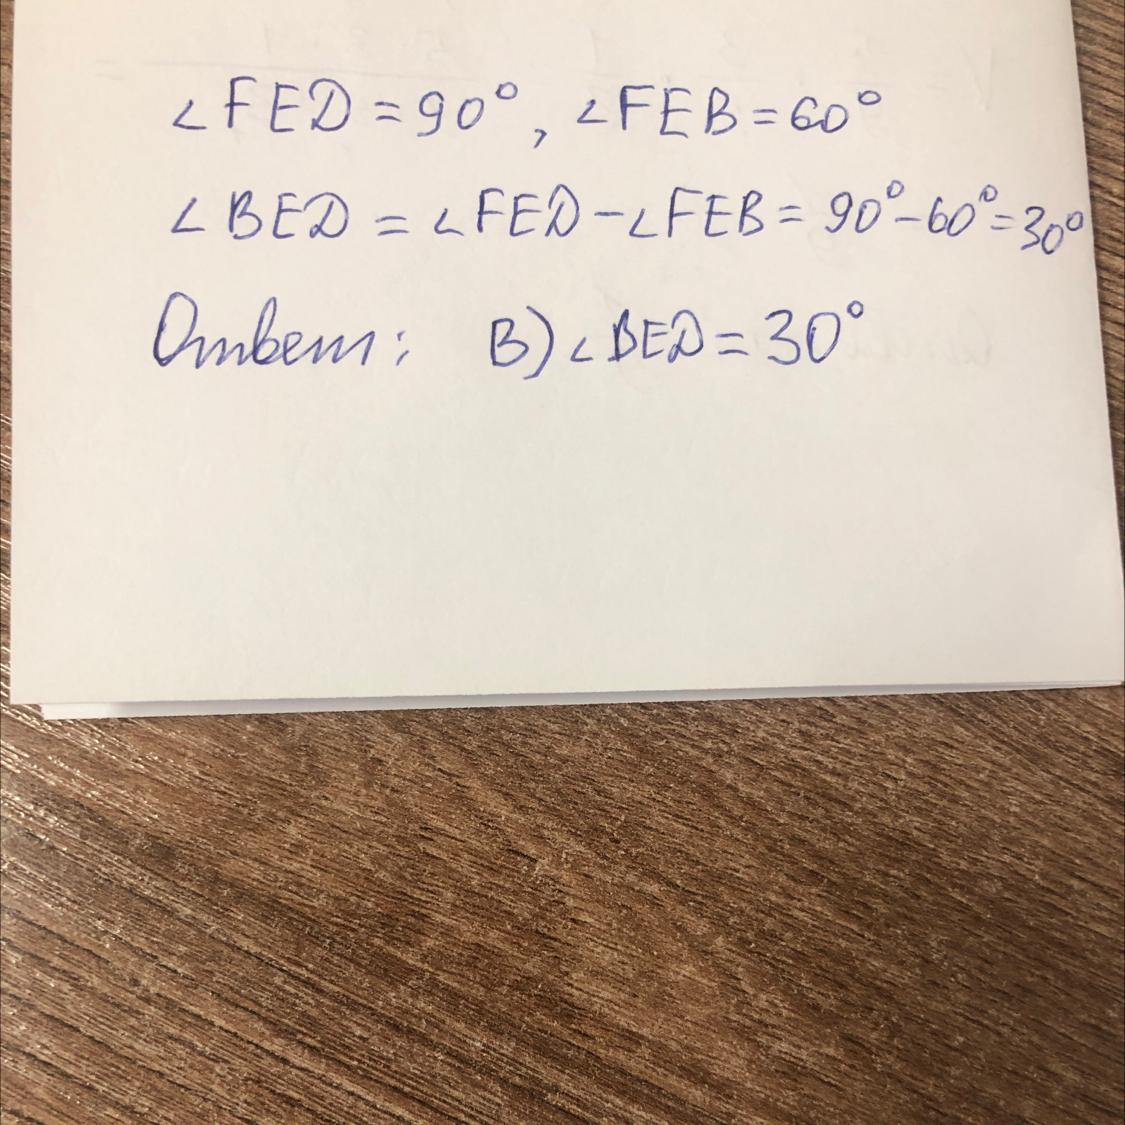 ∠FED = 90°, ∠FEB = 60°
∠BED = ∠FED - ∠FEB = 90° - 60° = 30°
Ответ: В) ∠BED = 30°